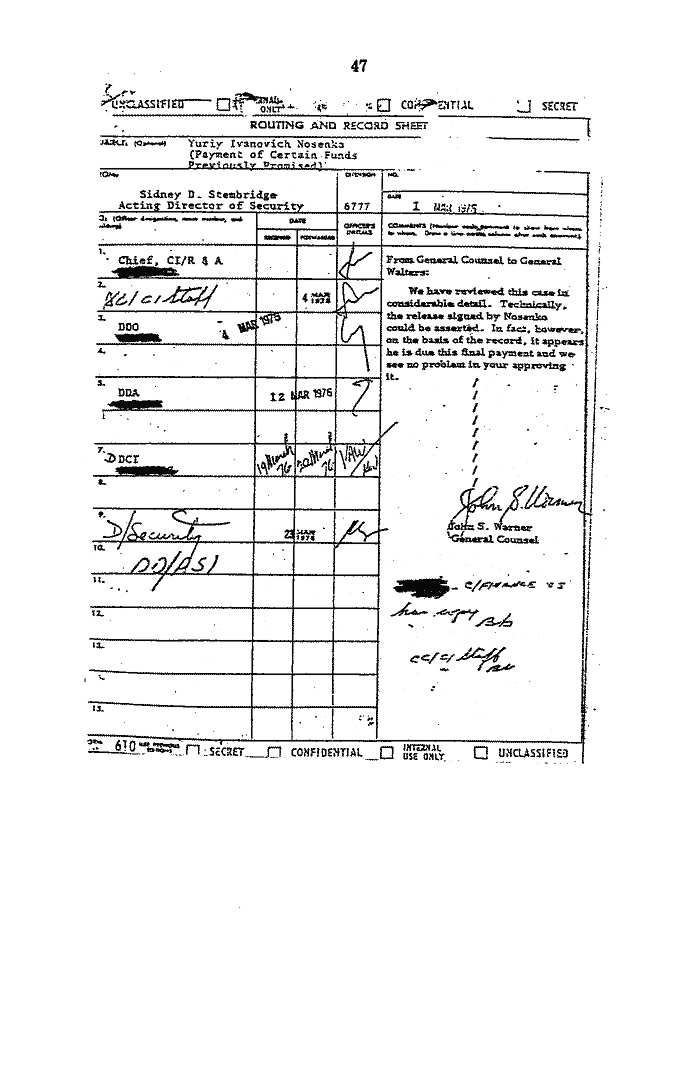 47
UNCLASSIFIED ONLY CONFIDENTIAL SECRET
ROUTING AND RECORD SHEET
(Optional) Yuriy Ivanovich Nosenko
(Payment of Certain Funds
Previously Promised)
EXTENSION NO.
Sidney D. Stembridge
Acting Director of Security 6777
DATE
1 MAR 1976
TO: (Officer designation, room number, and
building)
DATE
RECEIVED FORWARDED
OFFICER'S
INITIALS
COMMENTS (Number each comment to show from whom
to whom. Draw a line across column after each comment.)
1. Chief, CI/R & A
2. C/CI Staff 4 MAR 1976
3. DDO 4 MAR 1976
4.
5. DDA 12 MAR 1976
7. DDCI 19 March 76 20 March 76 VAW
8.
9. D/Security 23 MAR 1976
10. DD/PSI
11.
12.
13.
15.
From General Counsel to General
Walters:
We have reviewed this case in
considerable detail. Technically,
the release signed by Nosenko
could be asserted. In fact, however,
on the basis of the record, it appears
he is due this final payment and we
see no problem in your approving
it.
John S. Warner
John S. Warner
General Counsel
C/FINANCE
has copy
cc/CI Staff
FORM 610 USE PREVIOUS EDITIONS SECRET CONFIDENTIAL INTERNAL USE ONLY UNCLASSIFIED